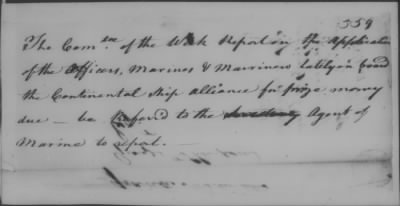 359
The Comee. of the Week Report on the Application
of the Officers, Marines & Marriners lately on board
the Continental Ship Alliance for prize money
due — be referred to the Agent of
Marine to report. —